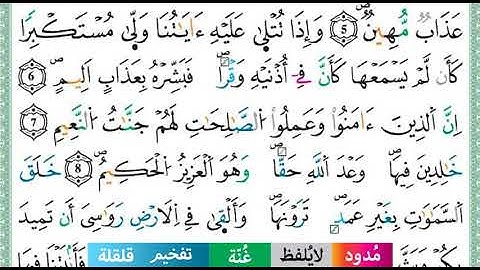 عَذَابٌ مُّهِينٌ ۝5 وَإِذَا تُتْلَىٰ عَلَيْهِ ءَايَٰتُنَا وَلَّىٰ مُسْتَكْبِرًا
كَأَن لَّمْ يَسْمَعْهَا كَأَنَّ فِىٓ أُذُنَيْهِ وَقْرًا فَبَشِّرْهُ بِعَذَابٍ اَلِيمٍ ۝6
اِنَّ اَلَّذِينَ ءَامَنُوا وَعَمِلُوا اُلصَّٰلِحَٰتِ لَهُمْ جَنَّٰتُ اُلنَّعِيمِ ۝7
خَٰلِدِينَ فِيهَا وَعْدَ اَللَّهِ حَقًّا وَهُوَ اَلْعَزِيزُ اُلْحَكِيمُ ۝8 خَلَقَ
اَلسَّمَٰوَٰتِ بِغَيْرِ عَمَدٍ تَرَوْنَهَا وَأَلْقَىٰ فِى اِلَارْضِ رَوَٰسِىَ أَن تَمِيدَ
مُدود لايُلفظ غُنّة تفخيم قلقلة